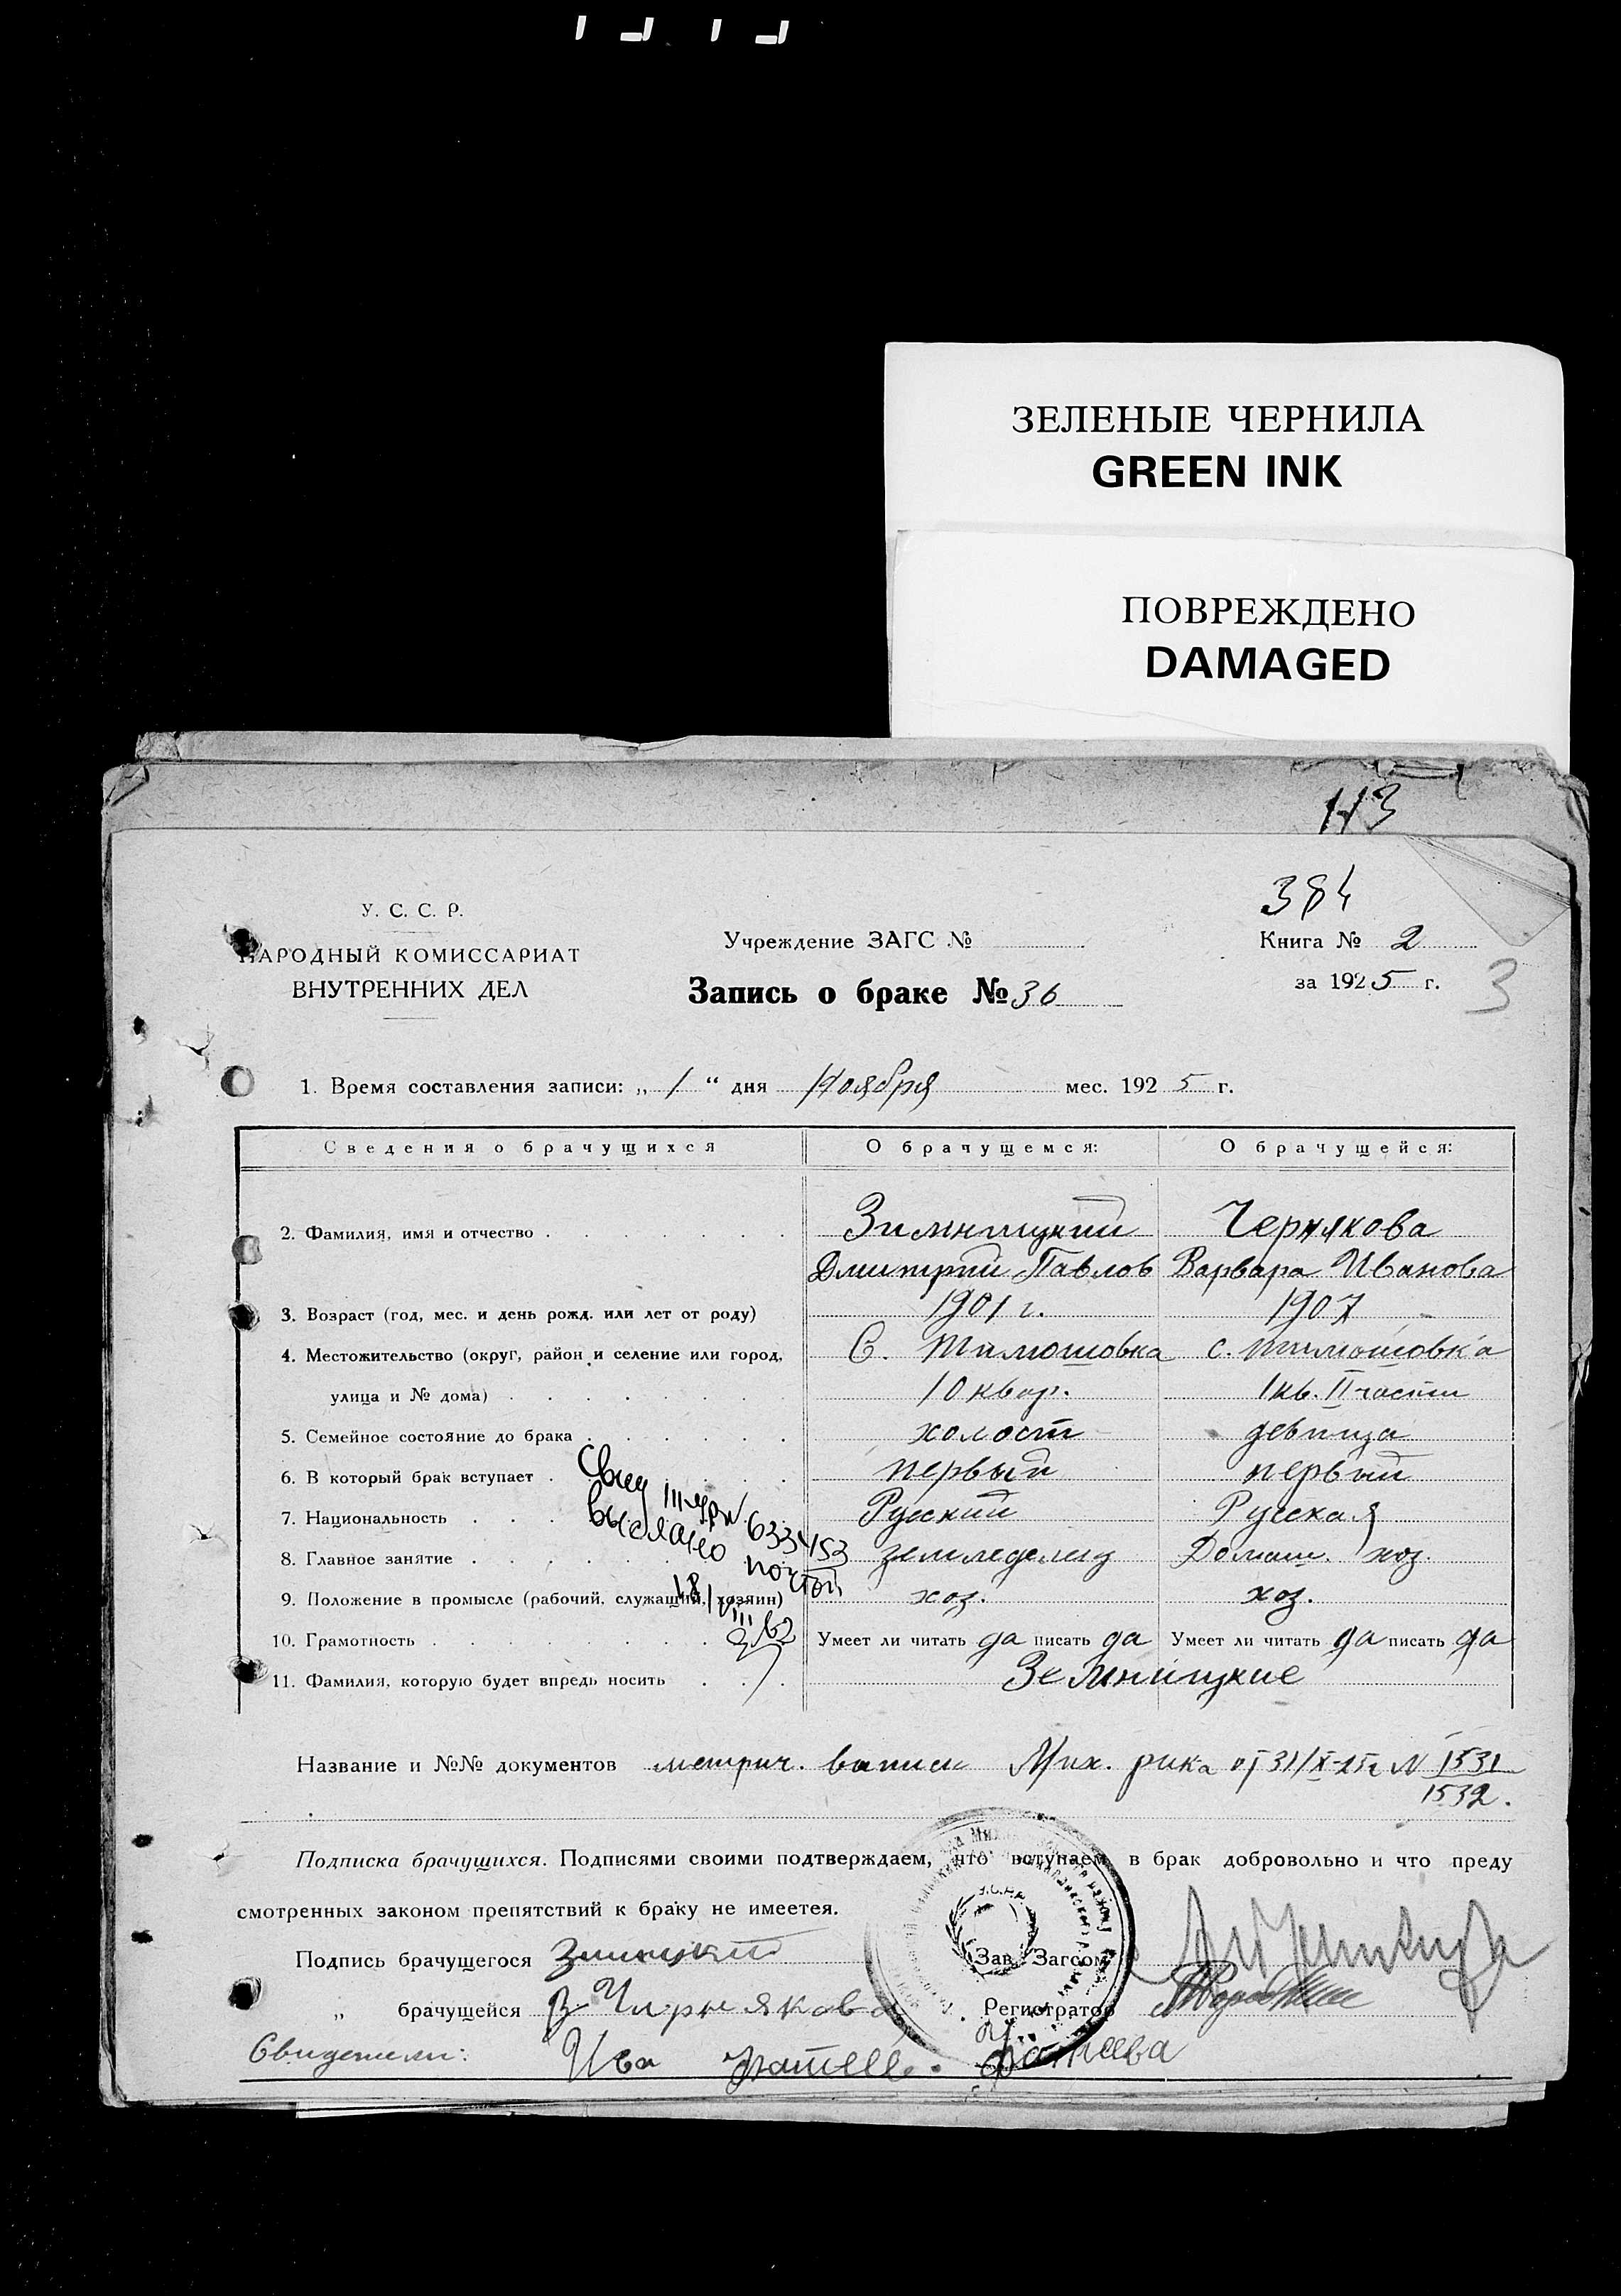 ЗЕЛЕНЫЕ ЧЕРНИЛА
GREEN INK
ПОВРЕЖДЕНО
DAMAGED
113
384
У. С. С. Р.
НАРОДНЫЙ КОМИССАРИАТ
ВНУТРЕННИХ ДЕЛ
Учреждение ЗАГС №
Запись о браке № 36
Книга № 2
за 1925 г.
3
1. Время составления записи: „ 1 “ дня Ноября мес. 1925 г.
Сведения о брачущихся О брачущемся: О брачущейся:
2. Фамилия, имя и отчество Зимницкий Чернякова
Дмитрий Павлов Варвара Иванова
3. Возраст (год, мес. и день рожд. или лет от роду) 1901 г. 1907
4. Местожительство (округ, район и селение или город, С. Тимошовка с. Тимошовка
улица и № дома) 10 квар. 1 кв. II части
5. Семейное состояние до брака холост девица
6. В который брак вступает первый первый
7. Национальность Русский Руская
8. Главное занятие земледелец Домаш. хоз.
9. Положение в промысле (рабочий, служащий, хозяин) хоз. хоз.
10. Грамотность Умеет ли читать да писать да Умеет ли читать да писать да
11. Фамилия, которую будет впредь носить Земницкие
Свид
633453
выслано почтой
18/VIII 62
Название и №№ документов метрич. выписи Мих. рика от 31/X-25г N 1531
1532.
Подписка брачущихся. Подписями своими подтверждаем, что вступаем в брак добровольно и что преду
смотренных законом препятствий к браку не имеетея.
Подпись брачущегося Зимницкий Зав. Загсом
„ брачущейся В Чирнякова Регистратор
Свидетели: Ива Фатеева